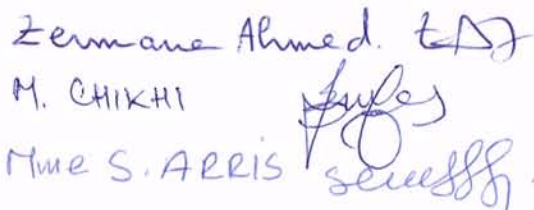 Zermane Ahmed.
M. CHIKHI
Mme S. ARRIS